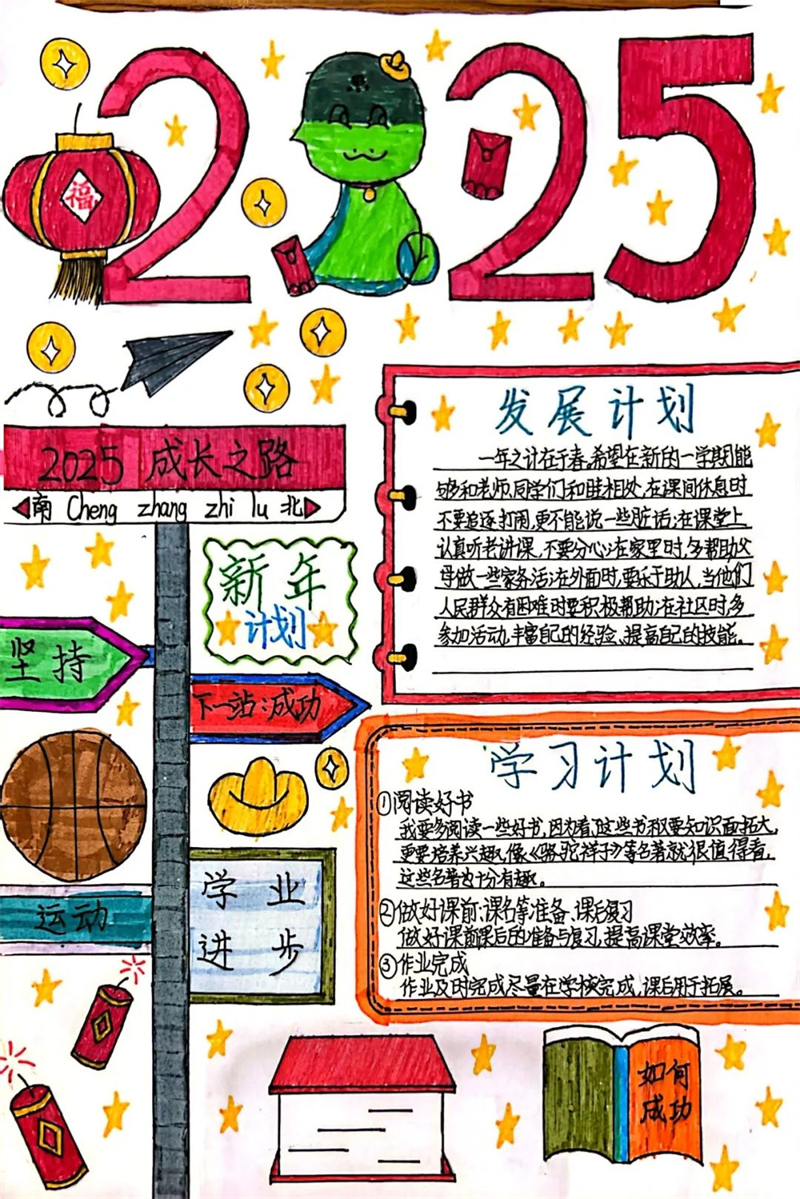 2025
福
2025 成长之路
南 Cheng zhang zhi lu 北
新年
计划
坚持
下一站:成功
运动
学业
进步
发展计划
一年之计在于春,希望在新的一学期能
够和老师,同学们和睦相处,在课间休息时
不要追逐打闹,更不能说一些脏话;在课堂上
认真听老讲课,不要分心;在家里时,多帮助父
母做一些家务活;在外面时,要乐于助人,当他们
人民群众有困难时要积极帮助;在社区时,多
参加活动,丰富自己的经验、提高自己的技能。
学习计划
①阅读好书
我要多阅读一些好书,因为看这些书积要知识面拓大,
更要培养兴趣,像《骆驼祥子》等名著就很值得看,
这些名著十分有趣。
②做好课前:课名等准备、课后复习
做好课前课后的准备与复习,提高课堂效率。
③作业完成
作业及时完成,尽量在学校完成,课后用于拓展。
如何
成功